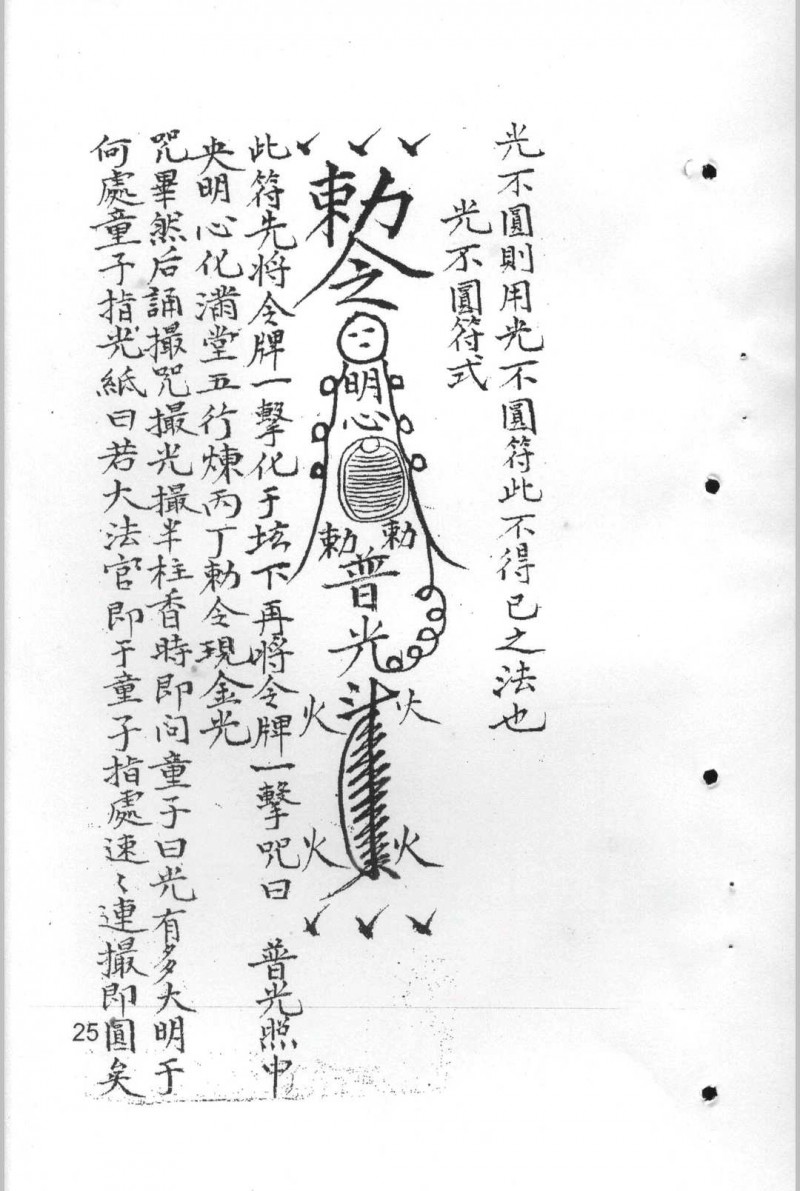 光不圓則用光不圓符此不得已之法也
光不圓符式
勅令
明心
勅 勅
普光
斗
火 火
火 火
此符先將令牌一擊化于坛下再將令牌一擊咒曰 普光照中
央明心化滿堂五行煉丙丁勅令現金光
咒畢然后誦撮咒撮光撮半柱香時即问童子曰光有多大明于
何處童子指光紙曰若大法官即于童子指處速〻連撮即圓矣
25